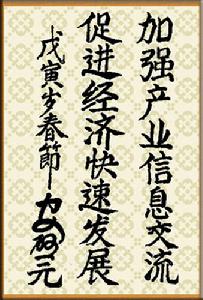 加强产业信息交流
促进经济快速发展
戊寅岁春節
元